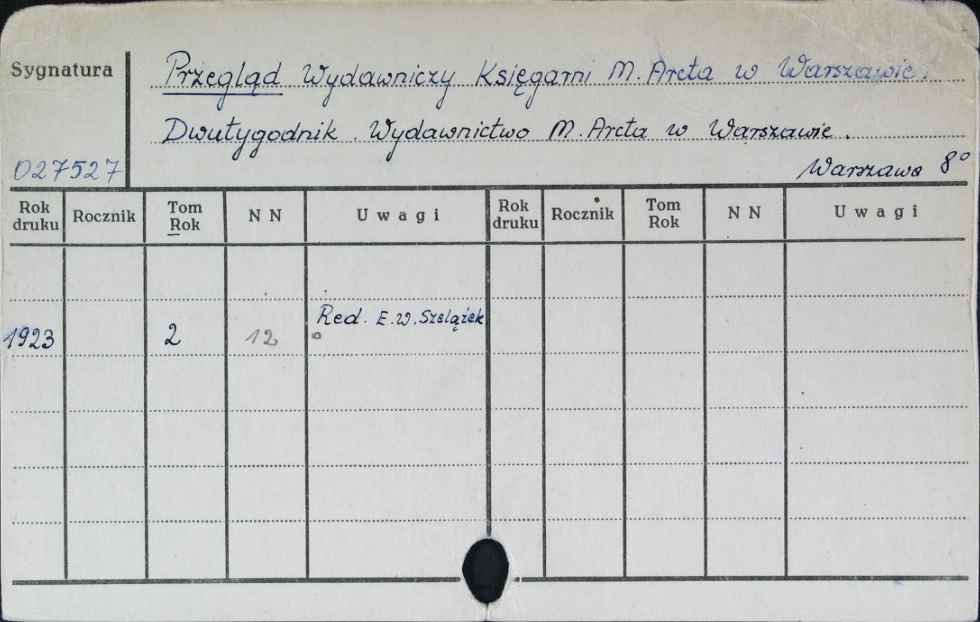 Sygnatura
Przegląd Wydawniczy Księgarni M. Arcta w Warszawie.
Dwutygodnik. Wydawnictwo M. Arcta w Warszawie.
027527
Warszawa 8°
Rok druku Rocznik Tom Rok N N Uwagi Rok druku Rocznik Tom Rok N N Uwagi
Red. E.W. Szelążek
1923 2 12 °